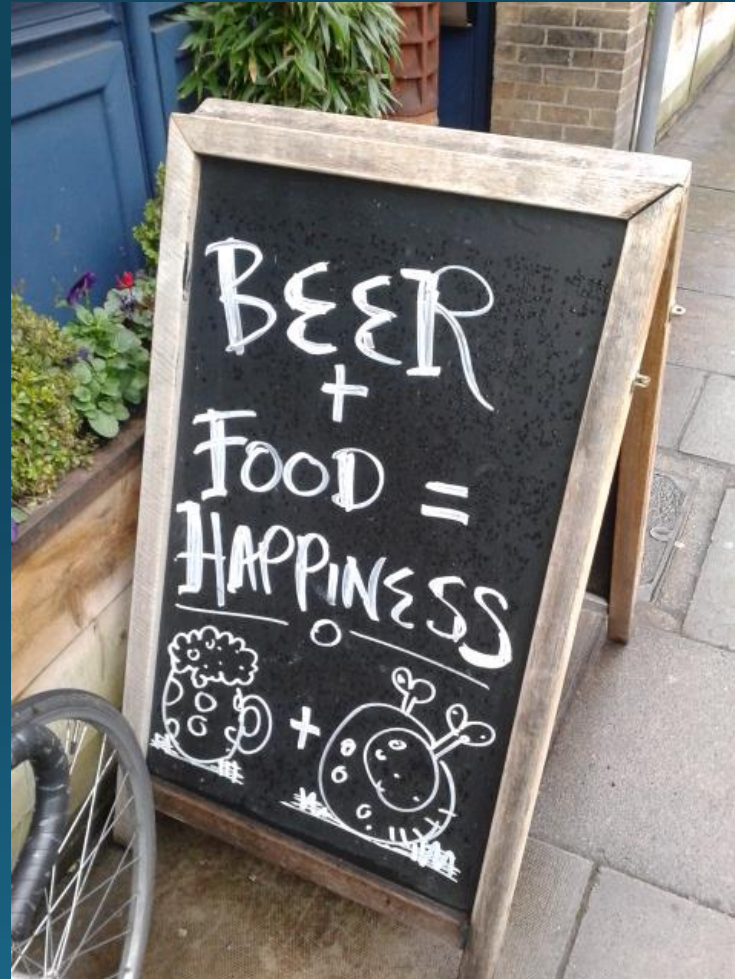 BEER
+
FOOD =
HAPPINESS
+